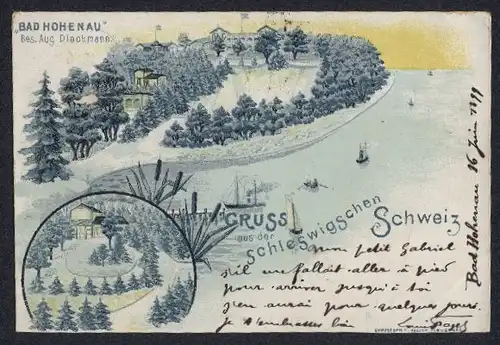 "BAD HOHENAU"
Bes. Aug. Diackmann.
GRUSS
aus der
Schleswigschen
Schweiz
Bad Hohenau 16 Juin 1899
mon petit Gabriel
s'il me fallait aller à pied
pour arriver jusqu'à toi
j'en aurai pour quelques jours.
je t'embrasse bien